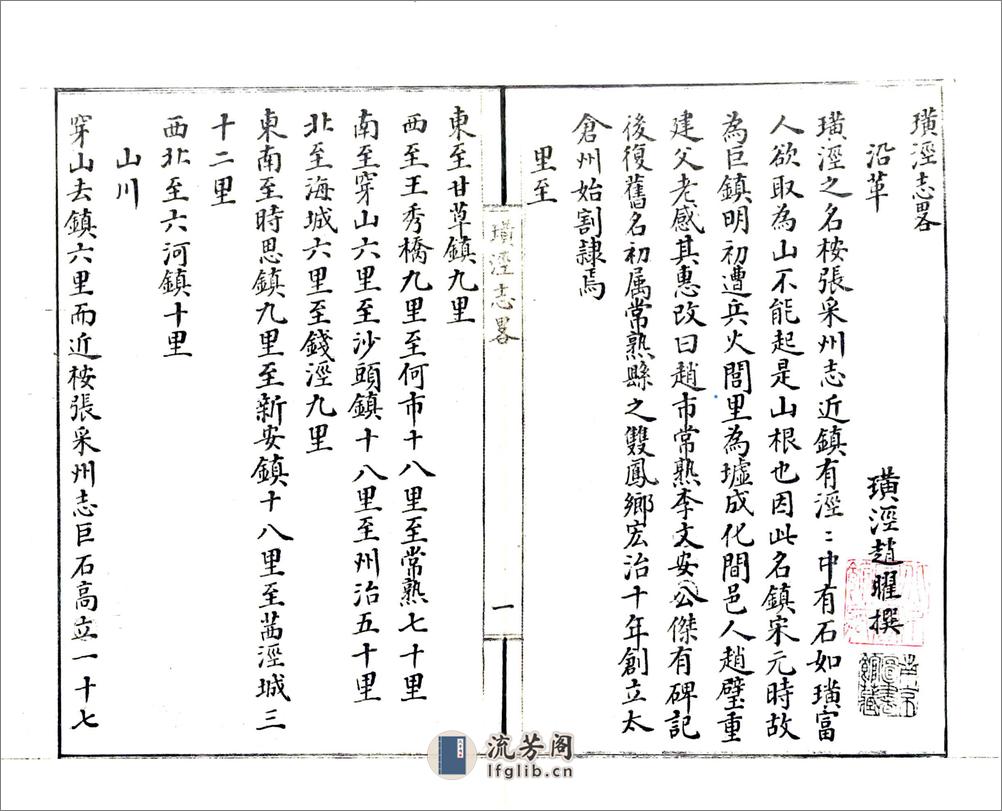 璜涇志畧
璜涇趙曜撰
沿革
璜涇之名桉張采州志近鎮有涇〻中有石如璜富
人欲取為山不能起是山根也因此名鎮宋元時故
為巨鎮明初遭兵火閭里為墟成化間邑人趙璧重
建父老感其惠改曰趙市常熟李文安公傑有碑記
後復舊名初属常熟縣之雙鳳鄉宏治十年創立太
倉州始割隷焉
里至
璜涇志畧
一
東至甘草鎮九里
西至王秀橋九里至何市十八里至常熟七十里
南至穿山六里至沙頭鎮十八里至州治五十里
北至海城六里至錢涇九里
東南至時思鎮九里至新安鎮十八里至茜涇城三
十二里
西北至六河鎮十里
山川
穿山去鎮六里而近桉張采州志巨石高立一十七
南京圖書館藏
流芳阁
lfglib.cn